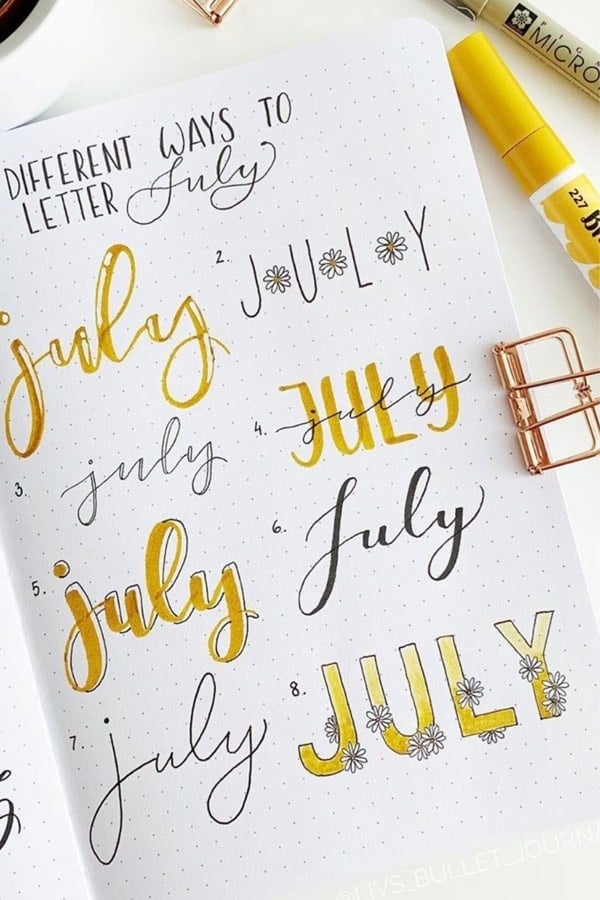 DIFFERENT WAYS TO
LETTER July
july
2. JULY
3. july
4. JULY
july
5. july
6. July
7. july
8. JULY
MICRON
227
@LIVS_BULLET_JOURNA